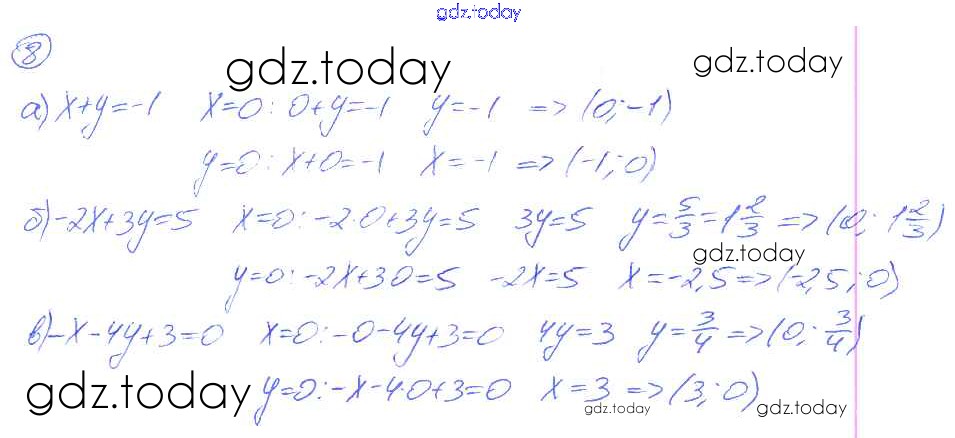 gdz.today
8
gdz.today gdz.today
а) x+y=-1 x=0: 0+y=-1 y=-1 => (0;-1)
y=0: x+0=-1 x=-1 => (-1;0)
б) -2x+3y=5 x=0: -2·0+3y=5 3y=5 y=5/3=1 2/3 => (0; 1 2/3)
gdz.today
y=0: -2x+30=5 -2x=5 x=-2,5 => (-2,5;0)
в) -x-4y+3=0 x=0: -0-4y+3=0 4y=3 y=3/4 => (0; 3/4)
gdz.today y=0: -x-4·0+3=0 x=3 => (3;0)
gdz.today gdz.today